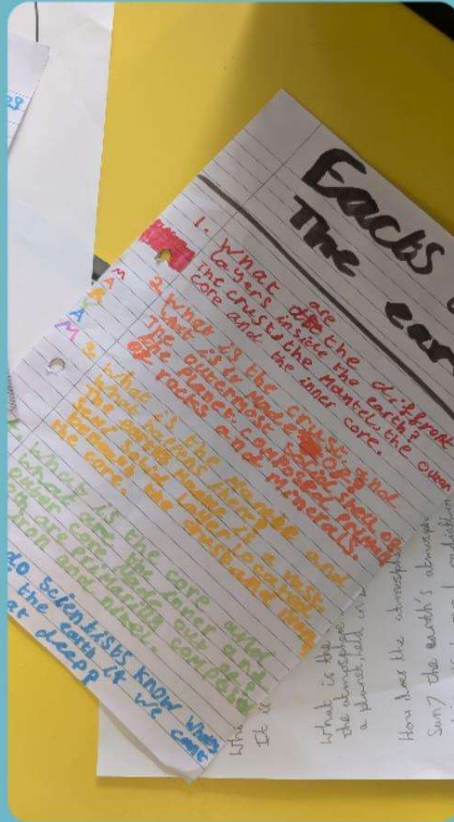 Facts
The ear
1. What are the diffrent
layers inside the earth?
the crust, the Mantel, the outer
core and the inner core.
2. What is the crust and
what is it Made of?
The outermost solid shell of
the planet, composed primarily
of rocks and minerals.
3. What is the Mantle and
what happens here?
the earth mantle is a vast
semi-solid layer located
beneath the crust and above
the core.
What is the core and
what are the inner and
outer core Made out of?
are primarily composed
iron and nickel.
do scientists know whats
the earth if we cant
at deep?
MARYAM
What is the
the atmosphere
a planet, held in
How does the atmosphere
Sun? the earth's atmosphere
It is